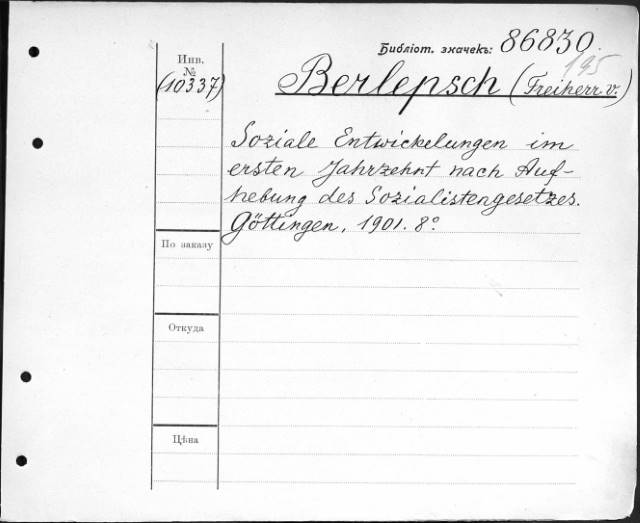 Библіот. значекъ: 86830.
195
Инв.
№
(10337)
Berlepsch (Freiherr v.)
Soziale Entwickelungen im
ersten Jahrzehnt nach Auf-
hebung des Sozialistengesetzes.
Göttingen, 1901. 8º
По заказу
Откуда
Цѣна